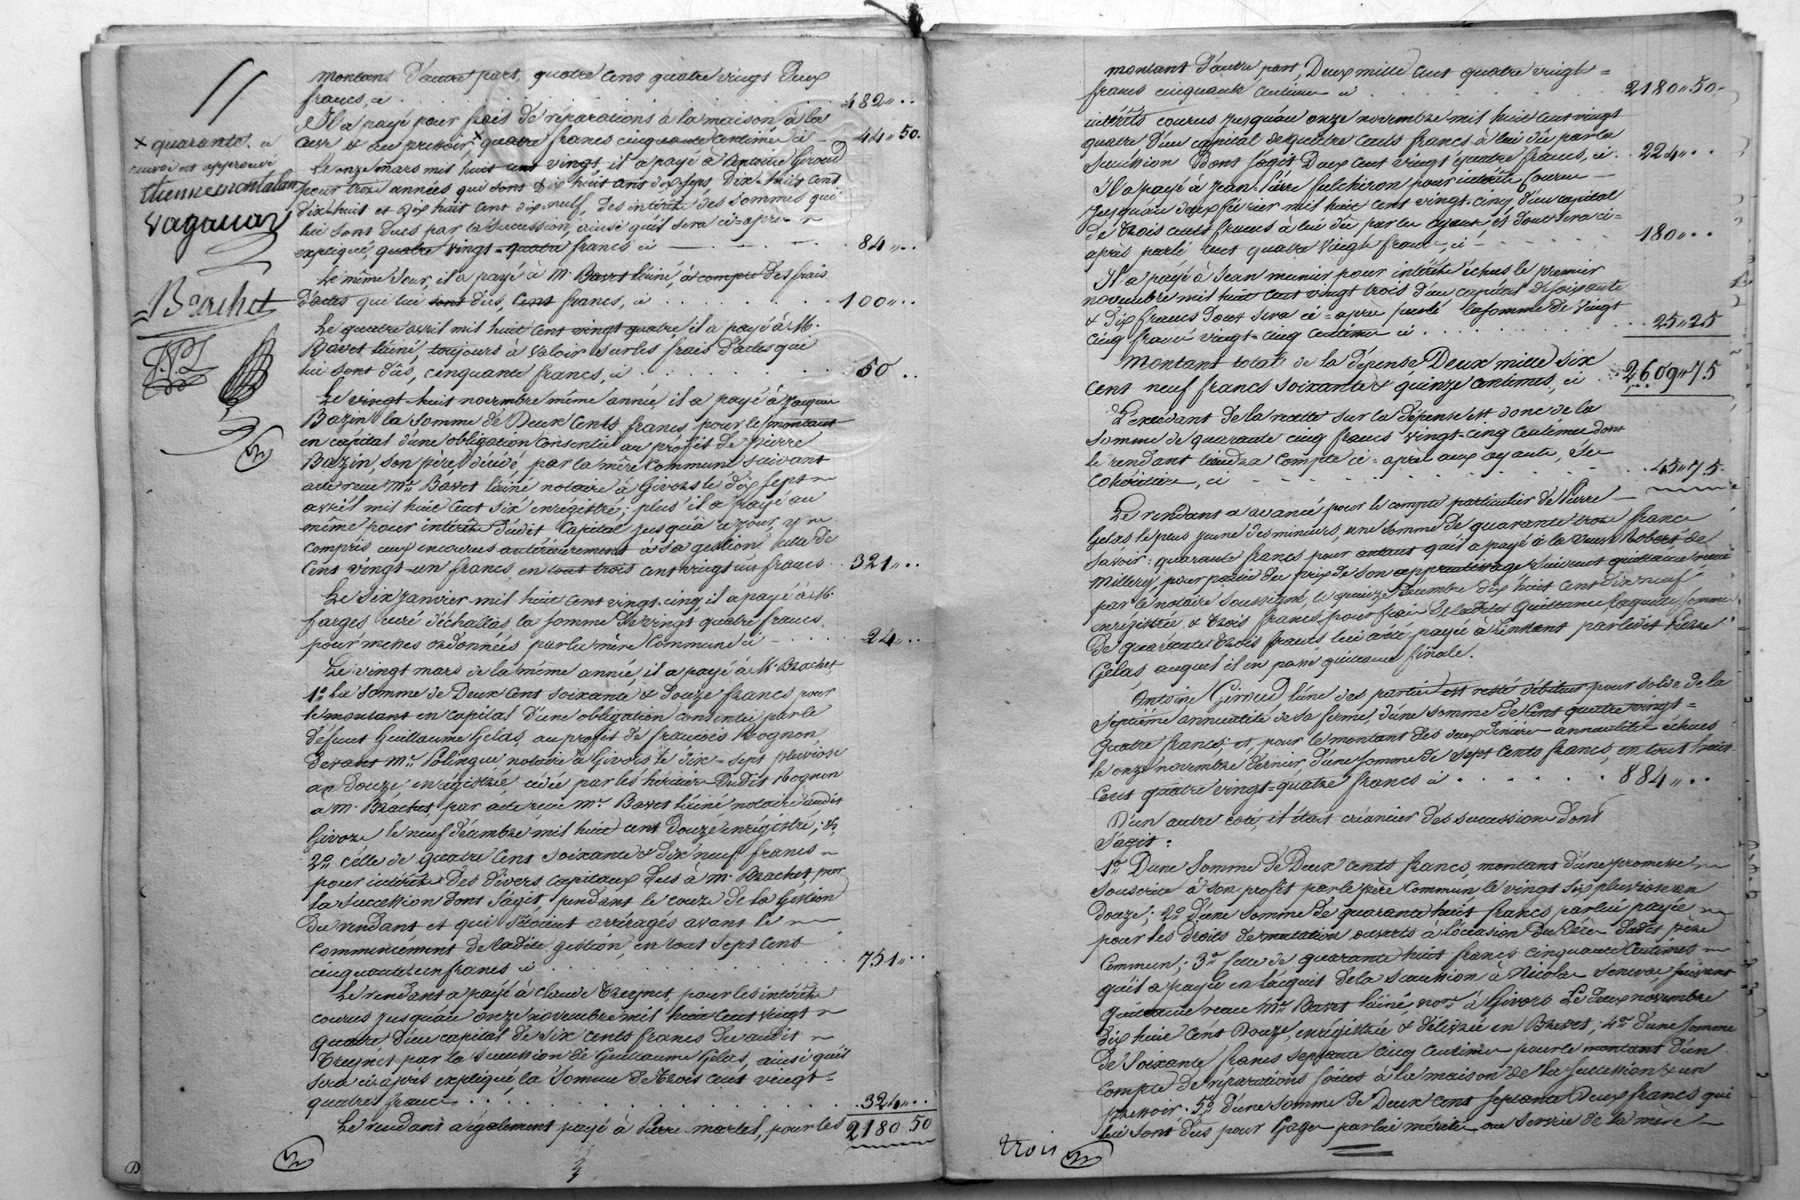 montant d'autre part, quatre cent quatre vingt Deux
francs, ci . . . 482 "..
Il a payé pour frais de réparations à la maison à la
cave et au pressoir, × quatre francs cinquante centimes ci 44 " 50.
Le onze mars mil huit cent vingt, il a payé à Antoine Giroud
pour trois années qui sont dix huit cent dix sept, Dix-huit cent
dix-huit et dix huit cent dix-neuf, des intérêts des sommes qui
lui sont dues par la succession, ainsi qu'il sera ci-après
expliqué quatre vingt-quatre francs ci — 84 "..
Le même jour, il a payé à M. Bavet l'aîné, à compte des frais
d'actes qui lui sont dûs, Cent francs, ci . . . 100 "..
Le quatre avril mil huit cent vingt quatre il a payé à M.
Bavet l'aîné, toujours à valoir sur les frais d'actes qui
lui sont dûs, cinquante francs, ci . . . 50 ..
Le vingt-huit novembre même année, il a payé à Jacques
Bazin la somme de Deux Cents francs, pour le montant
en capital d'une obligation consentie au profit de Pierre
Bazin, son père décédé, par la mère Commune suivant
acte reçu Me Bavet l'aîné notaire à Givors le dix sept
avril mil huit cent six enregistré; plus il a payé au
même pour intérêts dudit Capital jusqu'à ce jour, y
compris ceux encourus antérieurement à sa gestion celle de
Cent vingt-un francs, en tout trois cent vingt un francs . . 321 "..
Le six janvier mil huit cent vingt-cinq, il a payé à M.
farges curé d'échallas la somme de vingt quatre francs
pour messes ordonnées par la mère Commune ci — . . . 24 "..
Le vingt mars de la même année, il a payé à M. Brachet
1° la somme de Deux Cent soixante & douze francs pour
le montant en capital d'une obligation consentie par le
défunt Guillaume Gelas, au profit de francois Rognon
devant Me Polingue, notaire à Givors le dix-sept pluviose
an douze, enregistré, cédée par les héritiers dudit Rognon
à M. Brachet, par acte reçu Me Bavet l'aîné notaire audit
Givors le neuf décembre mil huit cent douze enregistré; &
2° celle de quatre cent soixante & dix neuf francs
pour intérêts des divers capitaux dus à M. Brachet, par
la succession dont s'agit, pendant le cours de la Gestion
du rendant et qui étaient arréragés avant le
commencement de ladite gestion, en tout sept cent
cinquante un francs ci . . . 751 "..
Le rendant a payé à Claude Freynet, pour les intérêts
courus jusqu'au onze novembre mil huit cent vingt
quatre d'un capital de six cents francs du audit
Freynet par la succession de Guillaume Gelas, ainsi qu'il
sera ci après expliqué, la somme de trois cent vingt-
quatre francs . . . 324 "..
Le rendant a également payé à Pierre martel, pour les 2180 50
11
× quarante. ci
Etienne montalan
Vaganay
Brachet
montant d'autre part, Deux mille cent quatre vingt-
francs cinquante centimes ci . . . 2180 " 50.
intérêts courus jusqu'au onze novembre mil huit cent vingt
quatre d'un capital de quatre cents francs à lui dû par la
Succession dont s'agit Deux cent vingt quatre francs, ci. 224 "..
Il a payé à Jean-Pierre fulchiron pour intérêts courus
jusqu'au deux février mil huit cent vingt-cinq d'un capital
de trois cents francs à lui dû par les oyants et dont sera ci-
après parlé cent quatre vingt francs, ci — . . . 180 "..
Il a payé à Jean munier pour intérêts échus le premier
novembre mil huit cent vingt trois d'un capital de soixante
& dix francs dont sera ci-après parlé la somme de vingt
cinq francs vingt-cinq centimes ci . . . 25 " 25
Montant total de la dépense Deux mille six
cent neuf francs soixante & quinze centimes, ci . . 2609 " 75
L'excédant de la recette sur la dépense est donc de la
somme de quarante cinq francs vingt-cinq centimes dont
le rendant tiendra compte ci-après aux oyants, ses
cohéritiers, ci — . . . 45 " 75.
Le rendant a avancé pour le compte particulier de Pierre
Gelas le plus jeune des mineurs, une somme de quarante trois francs
savoir: quarante francs pour autant qu'il a payé à la veuve Robert de
Millery, pour partie du prix de son apprentissage suivant quittance reçue
par le notaire soussigné, le quinze décembre dix huit cent dix neuf,
enregistrée & trois francs, pour frais de ladite Quittance laquelle somme
de quarante trois francs lui a été payée à l'instant par ledit Pierre
Gelas auquel il en passe quittance finale.
Antoine Giroud l'une des parties est resté débiteur pour solde de la
septième annuité de sa ferme, d'une somme de Cent quatre vingt-
quatre francs; et, pour le montant des deux dernières annuités échues
le onze novembre dernier d'une somme de sept cents francs, en tout huit
cent quatre vingt-quatre francs ci . . . 884 "..
D'un autre coté, il était créancier des succession dont
s'agit:
1° D'une Somme de Deux cents francs, montant d'une promesse
souscrite à son profit par le père Commun le vingt six pluviose an
douze; 2° d'une somme de quarante huit francs par lui payée
pour les droits de mutation ouverts à l'occasion du décès dudit père
Commun; 3° celle de quarante huit francs cinquante Centimes
qu'il a payée en l'acquit de la succession à Nicolas Seneva, suivant
quittance reçue Me Bavet l'aîné, nore à Givors Le Deux novembre
dix huit cent Douze, enregistrée & délivrée en Brevet; 4° d'une somme
de Soixante francs septante cinq centimes pour le montant d'un
compte de réparations faites à la maison de la succession & au
pressoir. 5° d'une somme de Deux cent septante Deux francs qui
lui sont dus pour Gages par lui mérités au service de la mère
trois